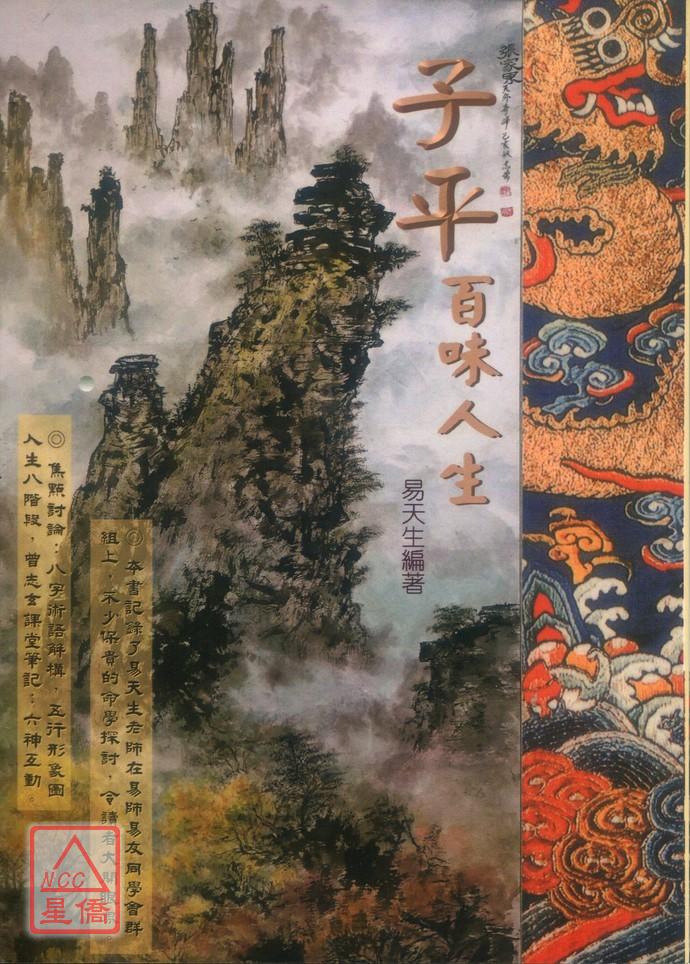 張家界
子平百味人生
易天生編著
◎ 本書記錄了易天生老師在易師易友同學會群
組上，不少保貴的命學探討，令讀者大開眼界。
◎ 焦點討論：八字術語解構，五行形象圖
人生八階段，曾志玄課堂筆記：六神互動。
NCC
星僑